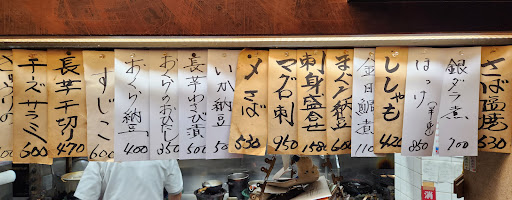 さば塩焼
530
銀ダラ煮
900
ほっけ(半身)
850
ししゃも
420
金目鯛煮
まぐろ納豆
600
刺身盛合せ
1580
マグロ刺
950
〆さば
530
いか納豆
長芋わさび漬
おくらのおひたし
350
おくら納豆
400
すじこ
600
長芋千切り
470
チーズサラミ
500
消